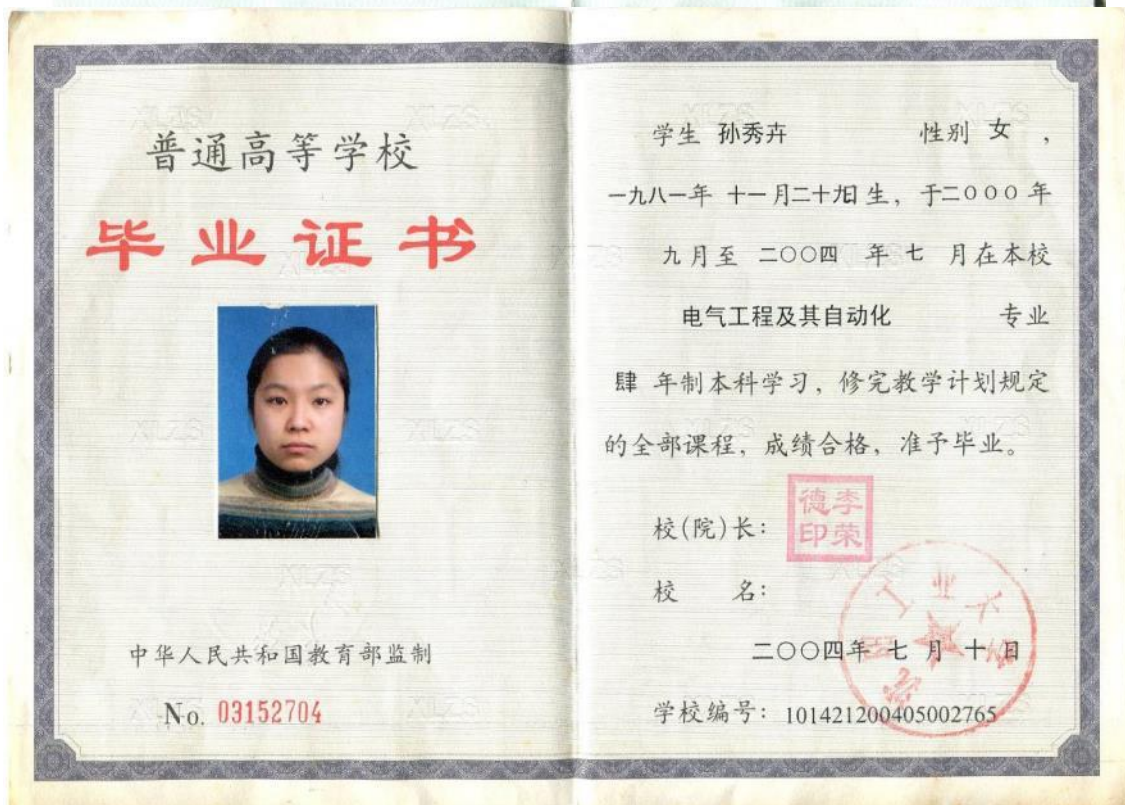 普通高等学校
毕业证书
中华人民共和国教育部监制
No. 03152704
学生 孙秀卉 性别 女，
一九八一年 十一月二十九日生，于二〇〇〇年
九月至 二〇〇四 年 七 月在本校
电气工程及其自动化 专业
肆 年制本科学习，修完教学计划规定
的全部课程，成绩合格，准予毕业。
校(院)长：
李荣德印
校 名：
沈阳工业大学
二〇〇四年 七 月 十 日
学校编号：101421200405002765
XLZS